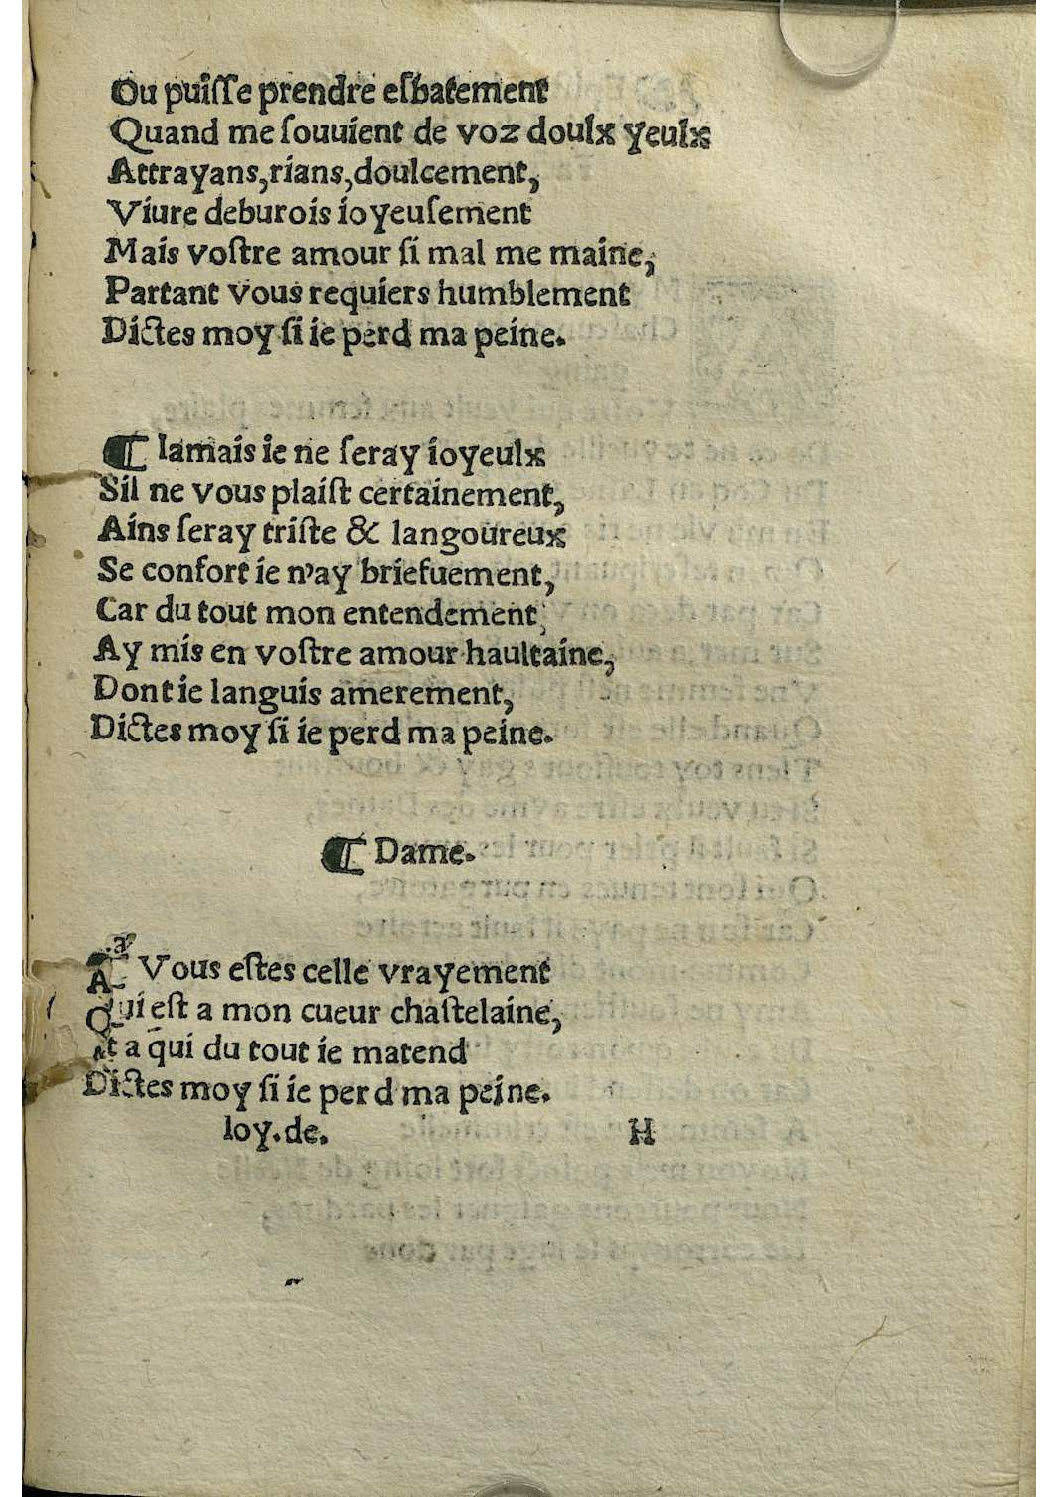 Ou puiſſe prendre eſbatement
Quand me ſouuient de voz doulx yeulx
Attrayans,rians,doulcement,
Viure deburois ioyeuſement
Mais voſtre amour ſi mal me maine,
Partant vous requiers humblement
Dictes moy ſi ie perd ma peine.
¶ Iamais ie ne ſeray ioyeulx
Sil ne vous plaiſt certainement,
Ains ſeray triſte & langoureux
Se confort ie n'ay briefuement,
Car du tout mon entendement,
Ay mis en voſtre amour haultaine,
Dont ie languis amerement,
Dictes moy ſi ie perd ma peine.
¶ Dame.
Vous eſtes celle vrayement
Qui eſt a mon cueur chaſtelaine,
Et a qui du tout ie matend
Dictes moy ſi ie perd ma peine.
Ioy.de. H